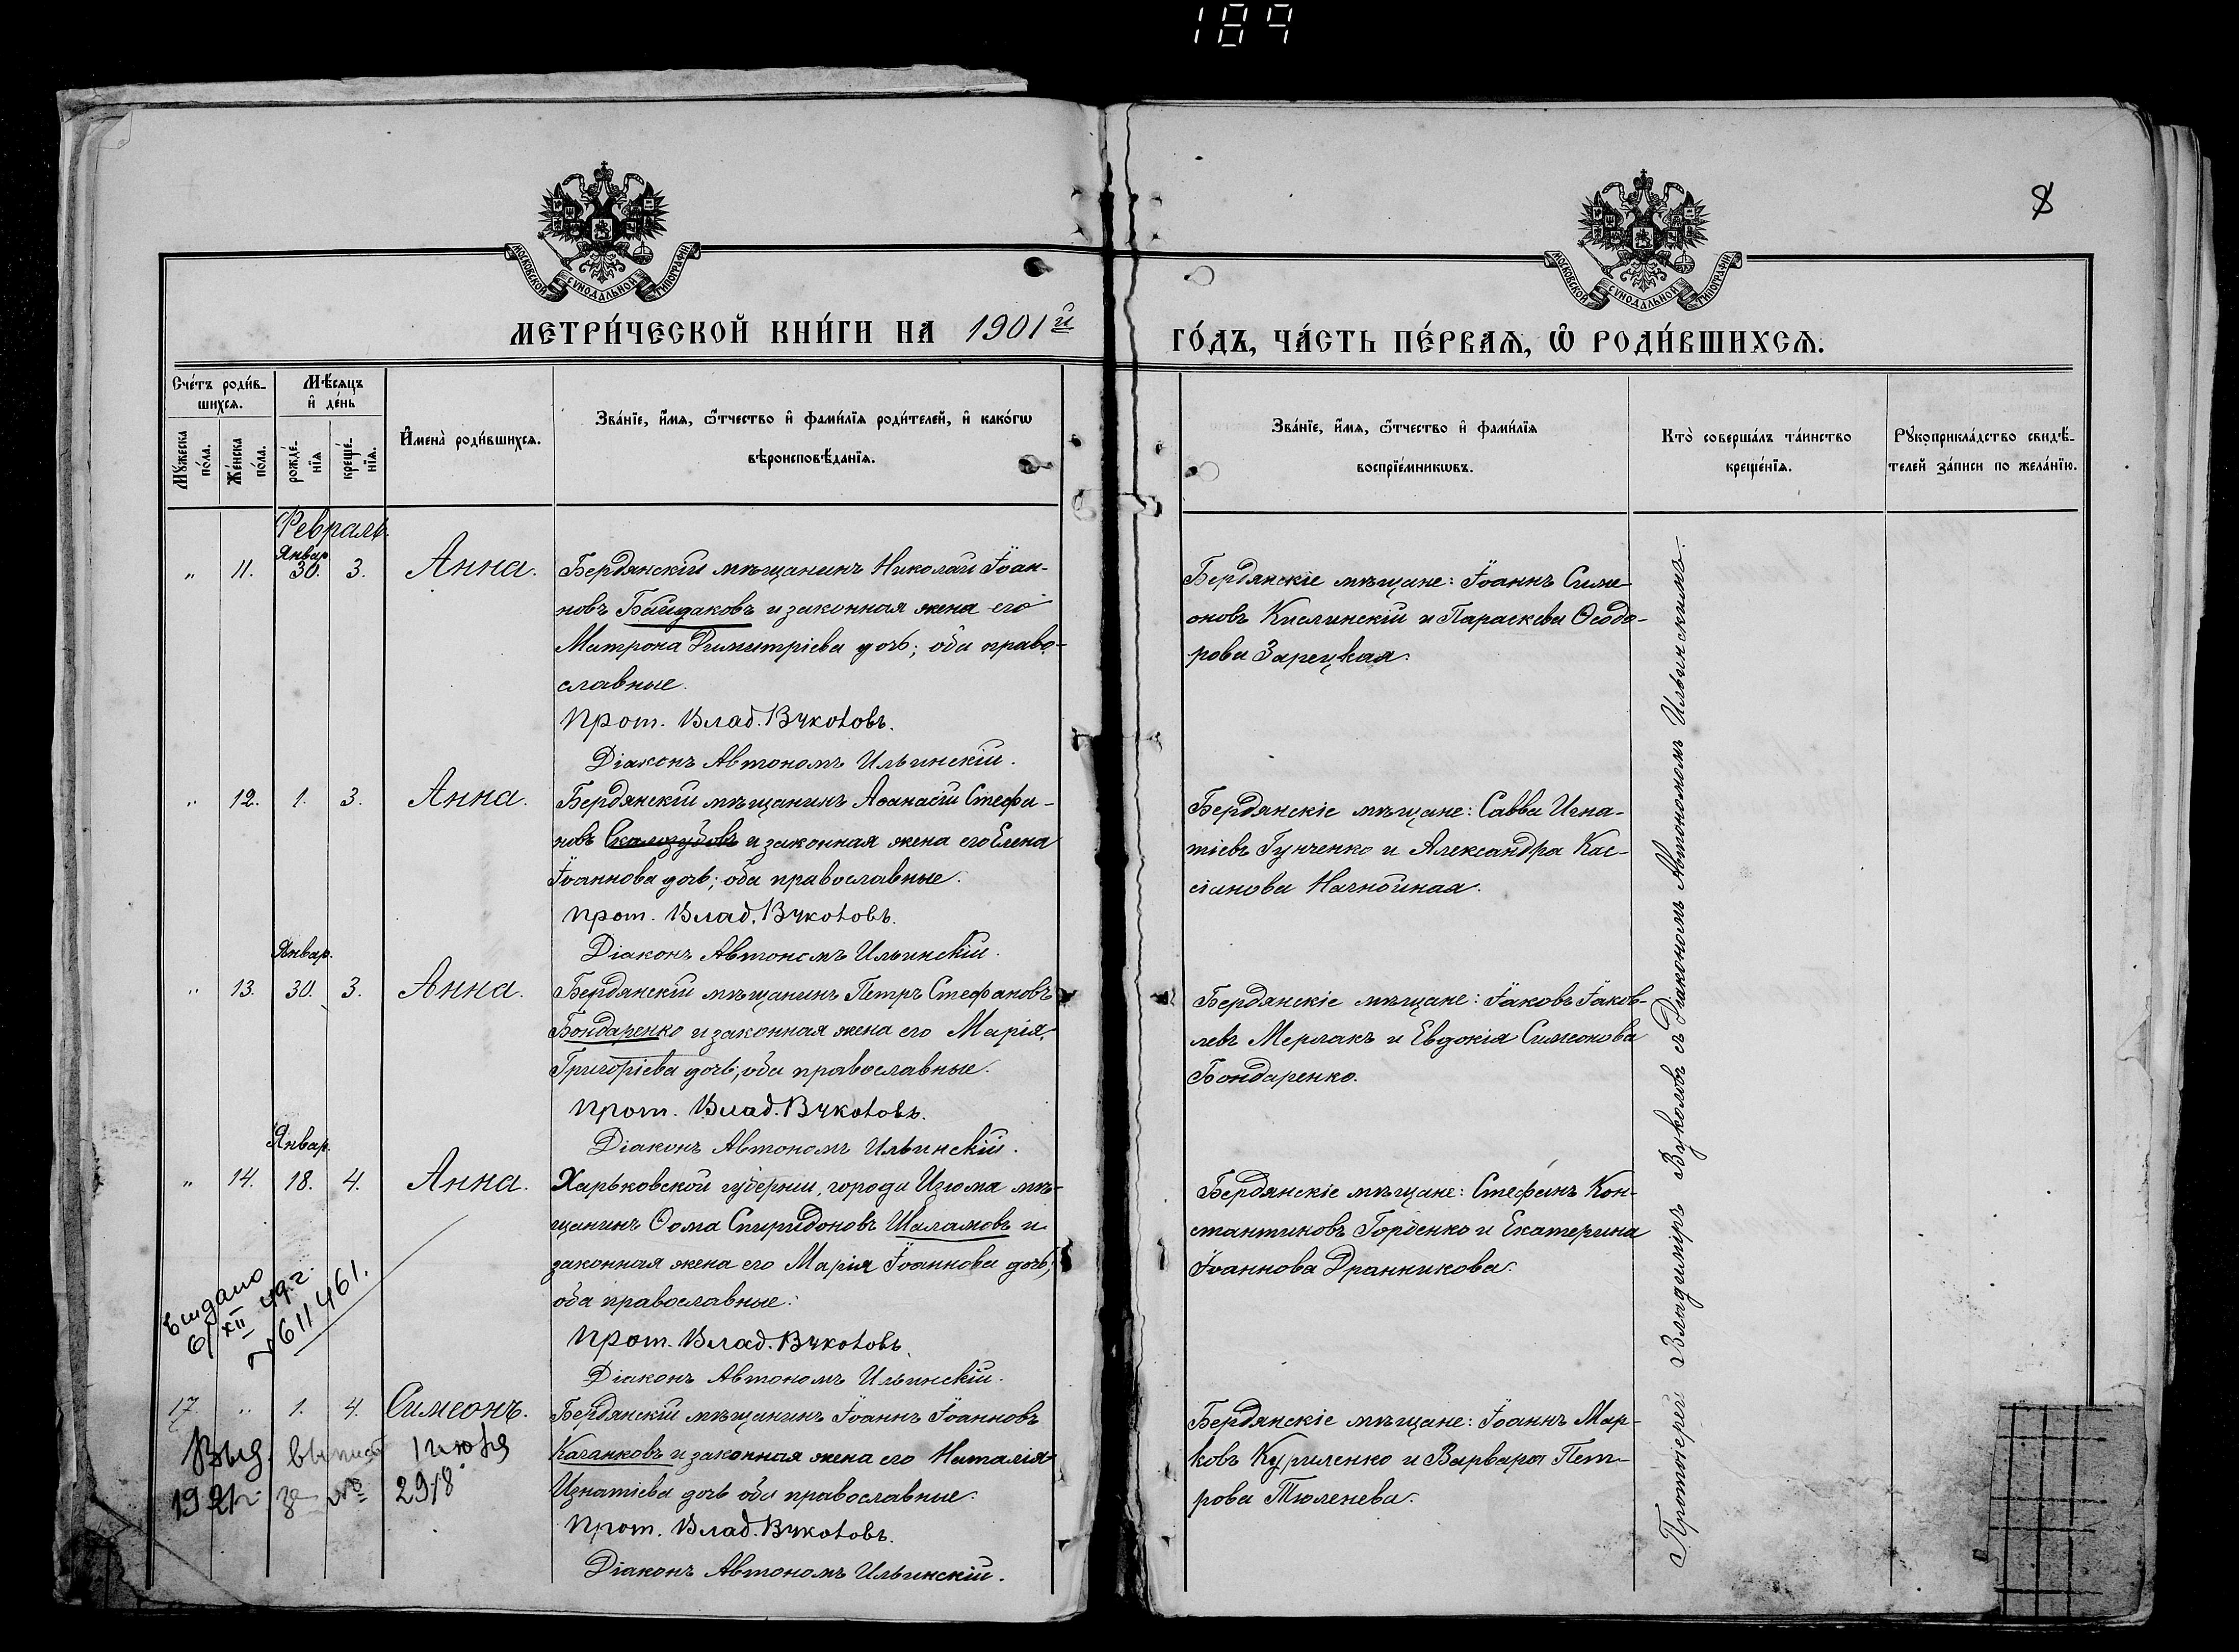 189
8
МОСКОВСКОЙ СѴНОДАЛЬНОЙ ТИПОГРАФІИ
МОСКОВСКОЙ СѴНОДАЛЬНОЙ ТИПОГРАФІИ
МЕТРИ́ЧЕСКОЙ КНИ́ГИ НА 1901й
ГО́ДЪ, ЧА́СТЬ ПЕ́РВАѦ, Ѽ РОДИ́ВШИХСѦ.
Сче́тъ роди́в-
шихсѧ.
Мѣ́сѧцъ
и҆ де́нь
Мꙋ́жеска
по́ла.
Же́нска
по́ла.
рожде́-
нїѧ
креще́-
нїѧ.
И҆мена̀ роди́вшихсѧ.
Зва́нїе, и҆́мѧ, ѻ҆́тчество и҆ фами́лїѧ роди́телей, и҆ како́гѡ
вѣроисповѣ́данїѧ.
Зва́нїе, и҆́мѧ, ѻ҆́тчество и҆ фами́лїѧ
воспрїе́мникѡвъ.
Кто̀ соверша́лъ та́инство
креще́нїѧ.
Рꙋкоприкла́дство свидѣ́-
телей за́писи по жела́нїю.
Февраль.
Январ
„ 11. 30. 3. Анна. Бердянскій мѣщанинъ Николай Іоан-
новъ Байдаковъ и законная жена его
Матрона Димитріева дочь; оба право-
славные.
Прот. Влад. Вуколовъ.
Діаконъ Автономъ Ильинскій.
Бердянскіе мѣщане: Іоаннъ Симе
оновъ Кислинскій и Параскева Ѳеодо-
рова Зарецкая.
„ 12. 1. 3. Анна. Бердянскій мѣщанинъ Аѳанасій Стефа-
новъ Скалозубовъ и законная жена его Елена
Іоаннова дочь; оба православные.
Прот. Влад. Вуколовъ.
Діаконъ Автономъ Ильинскій.
Бердянскіе мѣщане: Савва Игна-
тіевъ Гунченко и Александра Кас-
сіанова
Январ.
„ 13. 30. 3. Анна. Бердянскій мѣщанинъ Петръ Стефановъ
Бондаренко и законная жена его Марія
Григоріева дочь; оба православные.
Прот. Влад. Вуколовъ.
Діаконъ Автономъ Ильинскій.
Бердянскіе мѣщане: Іаковъ Іаков-
левъ Мерлакъ и Евдокія Симеонова
Бондаренко.
Январ.
„ 14. 18. 4. Анна. Харьковской губерніи, города Изюма мѣ-
щанинъ Ѳома Спиридоновъ Шаламовъ и
законная жена его Марія Іоаннова дочь;
оба православные.
Прот. Влад. Вуколовъ.
Діаконъ Автономъ Ильинскій.
Бердянскіе мѣщане: Стефанъ Кон-
стантиновъ Горденко и Екатерина
Іоаннова Дранникова.
Выдано
6/XII 49 г.
№ 611461.
17. „ 1. 4. Симеонъ. Бердянскій мѣщанинъ Іоаннъ Іоанновъ
Качанковъ и законная жена его Наталія
Игнатіева дочь оба православные.
Прот. Влад. Вуколовъ.
Діаконъ Автономъ Ильинскій.
Бердянскіе мѣщане: Іоаннъ Мар-
ковъ Куриленко и Варвара Пет-
рова Тюленева.
Выд. 1 июня
за № 2918
Протоіерей Владиміръ Вуколовъ съ Діакономъ Автономомъ Ильинскимъ.